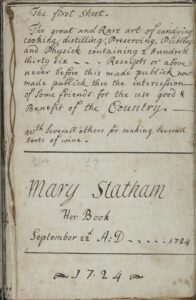 The first sheet.
The great and Rare art of candying
cooking, distilling, Preserving,
and Physick containing 2 Hundred
thirty Six - - . Receipts or above
never before this made publick, now
made publick thro the intercession
of some friends for the use good &
Benefit of the Country.
with severall others for making severall
sorts of wine.
Mary Statham
Her Book
September 22d A:D . . . . . 1724
1724